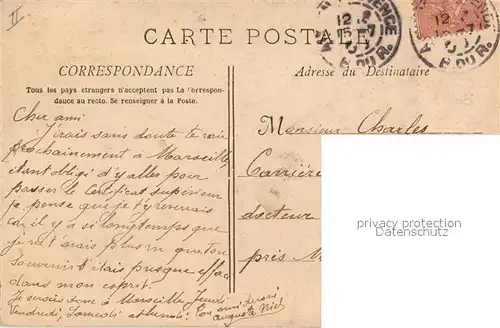 II
CARTE POSTALE
CORRESPONDANCE
Adresse du Destinataire
Tous les pays étrangers n'acceptent pas La Correspon-
dance au recto. Se renseigner à la Poste.
Cher ami
J'irais sans doute te voir
prochainement à Marseille,
étant obligé d'y aller pour
passer le Certificat Supérieur
je pense que je t'y reverrais
car il y a si longtemps que
je ne t'avais plus vu que ton
souvenir s'était presque effacé
dans mon esprit.
Je serais donc à Marseille Jeudi
Vendredi, Samedi attends! Ton ami dévoué
Auguste Niel
Monsieur Charles
Carrière
docteur
près M
12
15-7
B. DU R.
12
B. DU R.
privacy protection
Datenschutz